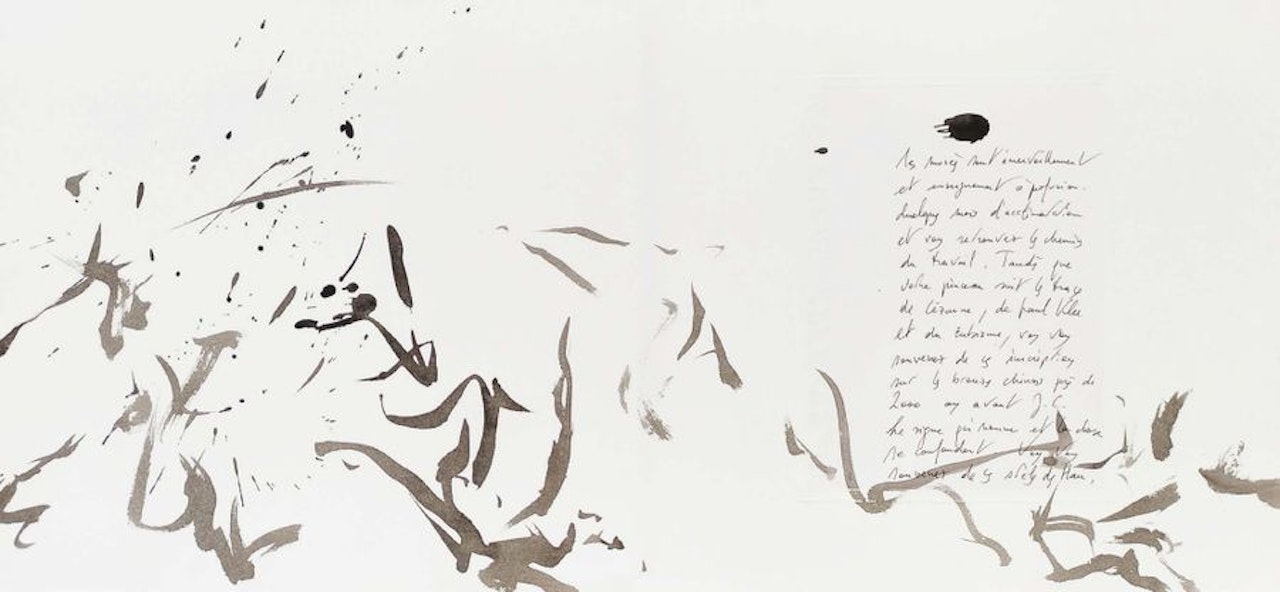 les musées sont émerveillement
et enseignement à profusion.
Quelques mois d'acclimatation
et vous retrouvez le chemin
du travail. Tandis que
votre pinceau suit les traces
de Cézanne, de Paul Klee
et du cubisme, vous vous
souvenez de ces inscriptions
sur les bronzes chinois près de
2000 ans avant J.C.
le signe qui nomme et la chose
se confondent. Vous vous
souvenez de ces stèles des Han.